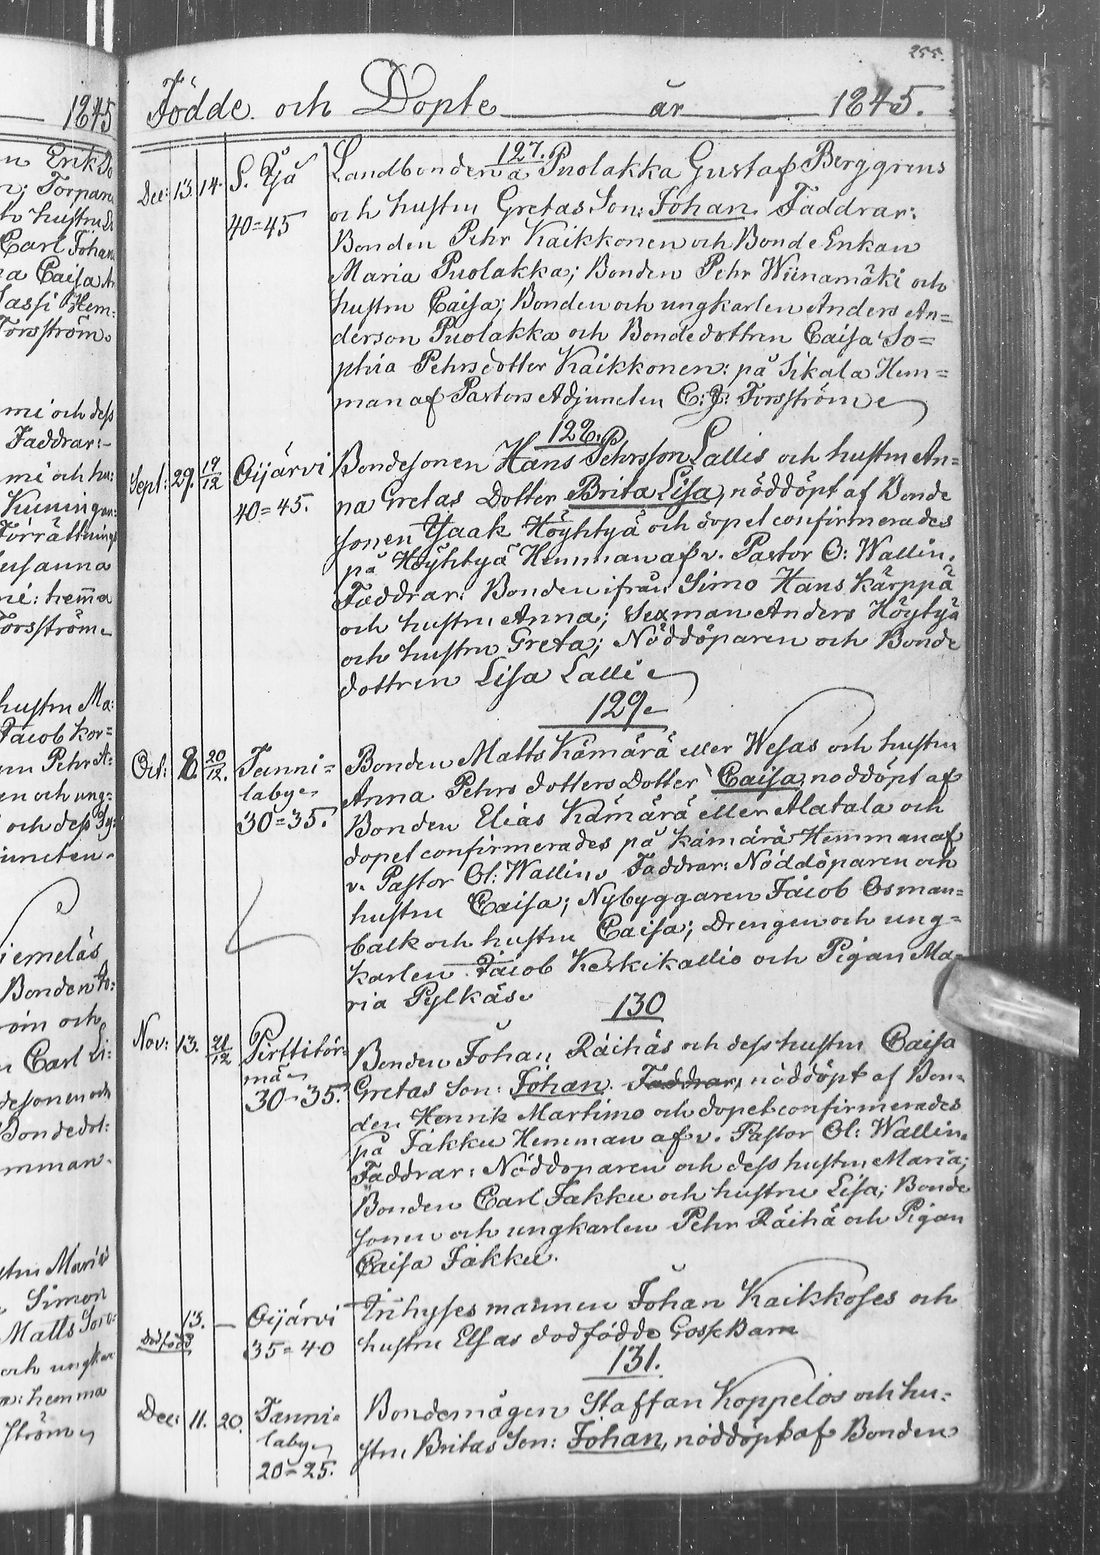 255.
1845
Födde och Döpte år 1845.
n Erik
n; Torpare
hustru
Carl Johan
a Caisa
Lassi Hem:
Torsström.
mi och dess
Faddrar:
mi och hu:
Kuningas
Förrättnings
Susanna
mi: hemma
Torsström
hustru Ma:
Jacob Kor=
Pehr A:
en och ung=
och dess
juncten.
Niemeläs
Bonden
röm och
n Carl Li:
desonen och
Bondedot:
mman.
stru Maria
Simon
Matts
och ungkar
hemma
ström
127.
Dec: 13. 14. S. Yjä 40=45
Landbonden å Puolakka Gustaf Berggrens
och hustru Gretas Son: Johan. Faddrar:
Bonden Pehr Kaikkonen och Bonde Enkan
Maria Puolakka; Bonden Pehr Wiinamäki och
hustru Caisa; Bonden och ungkarlen Anders An=
derson Puolakka och Bondedottren Caisa So=
phia Pehrsdotter Kaikkonen: på Sikala Hem=
man af Pastors Adjuncten C: J: Torsström
128.
Sept: 29. 19/12 Oijärvi 40=45.
Bondesonen Hans Pehrsson Lallis och hustru An=
na Gretas Dotter Brita Lisa, nöddöpt af Bonde
sonen Isaak Höyhtyä och dopet confirmerades
på Höyhtyä Hemman af v. Pastor O: Wallin.
Faddrar: Bonden ifrån Simo Hans Kärppä
och hustru Anna; Sexman Anders Höyhtyä
och hustru Greta; Nöddöparen och Bonde
dottren Lisa Lalli
129
Oct: 8. 20/12. Tanni=
laby
30=35.
Bonden Matts Kämärä eller Wesas och hustru
Anna Pehrs dotters Dotter Caisa, noddöpt af
Bonden Elias Kämärä eller Alatala och
dopet confirmerades på Kämärä Hemman af
v. Pastor Ol: Wallin. Faddrar: Nöddöparen och
hustru Caisa; Nybyggaren Jacob Osman=
balk och hustru Caisa; Drengen och ung=
karlen Jacob Keskikallio och Pigan Ma=
ria Pylkäs.
130
Nov: 13. 21/12 Pirttitör=
mä
30-35.
Bonden Johan Räihäs och dess hustru Caisa
Gretas Son: Johan. Faddrar, nöddöpt af Bon=
den Henrik Martimo och dopet confirmerades
på Jakku Hemman af v. Pastor Ol: Wallin.
Faddrar: Nöddöparen och dess hustru Maria;
Bonden Carl Jakku och hustru Lisa; Bonde
sonen och ungkarlen Pehr Räihä och Pigan
Caisa Jakku.
13. — Oijärvi
dodfödd 35=40
Inhyses mannen Johan Kaikkoses och
hustru Elsas dodfödde Gosse Barn
131.
Dec: 11. 20. Tanni=
laby
20=25.
Bondemågen Staffan Koppelos och hu=
stru Britas Son: Johan, nöddöpt af Bonden